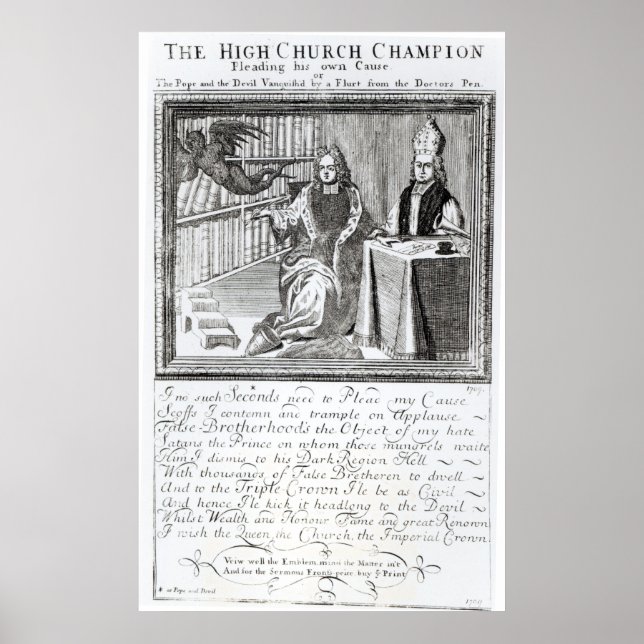 THE HIGH CHURCH CHAMPION
Pleading his own Cause
or
The Pope and the Devil Vanquish'd by a Flurt from the Doctors Pen.
1709.
I no such Seconds* need to Plead my Cause
Scoffs I contemn and trample on Applause
False-Brotherhood's the Object of my hate
Satans the Prince on whom those mungrels waite
Him I dismis to his Dark Region Hell
With thousands of False Bretheren to dwell
And to the Triple-Crown I'le be as Civil
And hence I'le kick it headlong to the Devil
Whilst Wealth and Honour Fame and great Renown
I wish the Queen, the Church, the Imperial Crown.
Veiw well the Emblem, mind the Matter in't
And for the Sermons Frontispeice buy ye Print
* as Pope and Devil
1709